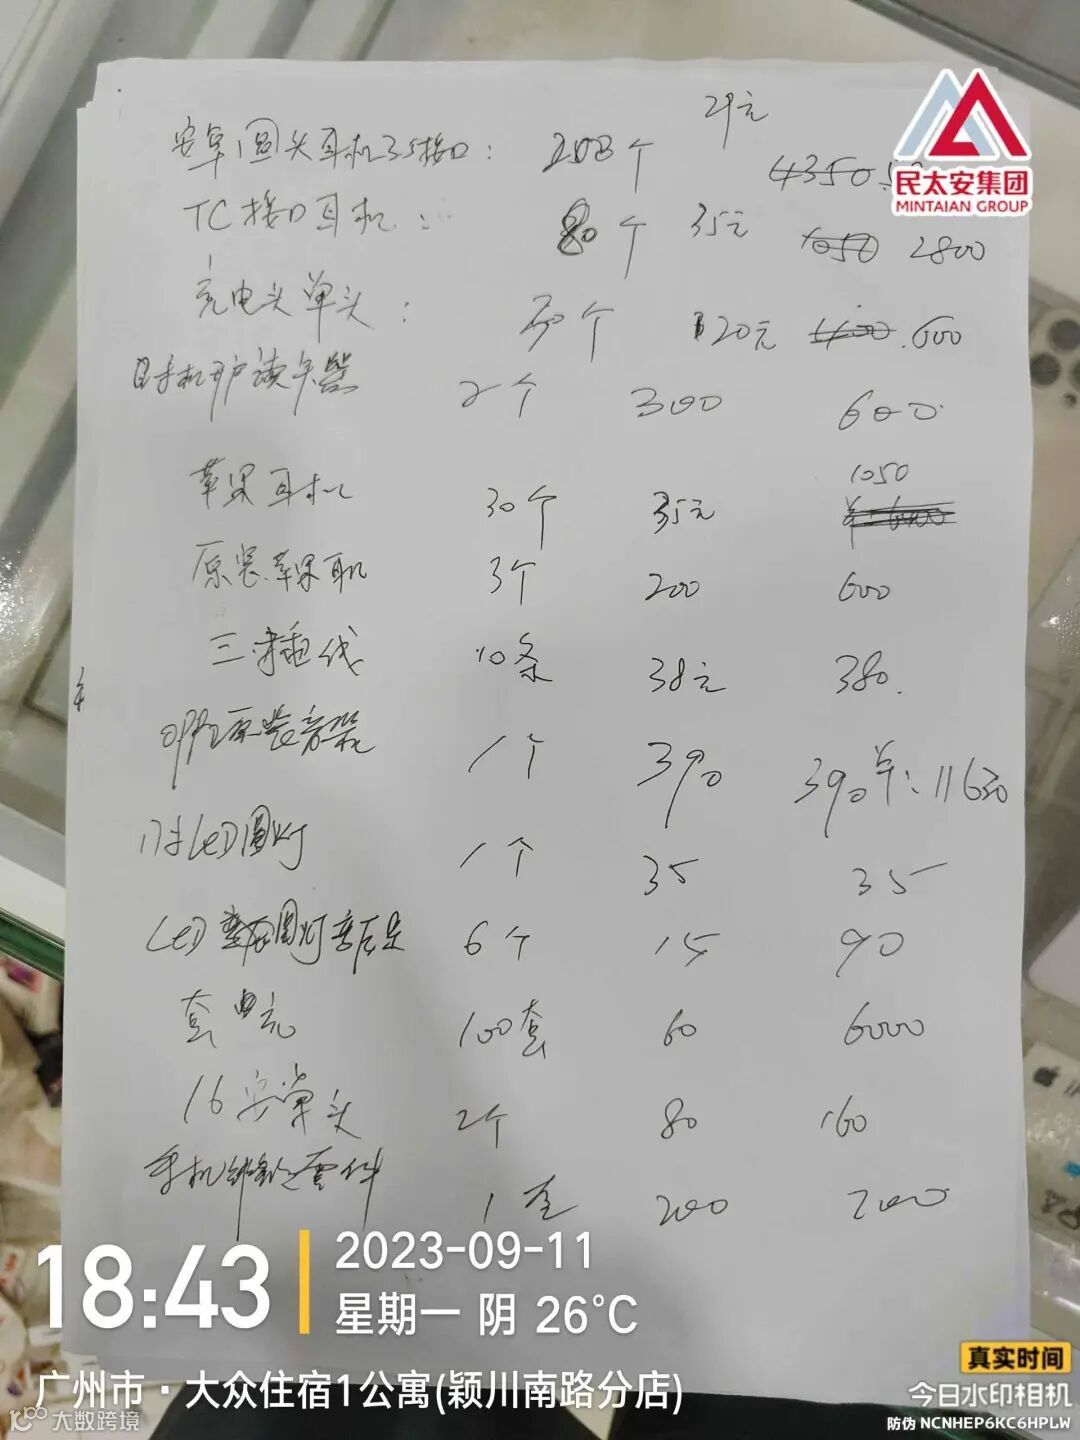 29元
安卓圆头耳机3.5接口: 203个 4350.
民太安集团
MINTAIAN GROUP
TC接口耳机: 80个 35元 1050 2800
充电头单头: 30个 20元 1400 .600
手机开户读卡器 2个 300 600
1050
苹果耳机 30个 35元
原装苹果耳机 3个 200 600
三插电线 10条 38元 380.
原装音架 1个 390 390 11650
LED圆灯 1个 35 35
LED 圆灯 6个 15 90
套电充 100套 60 6000
16安单头 2个 80 160
手机维修零件 1套 200 200
18:43
2023-09-11
星期一 阴 26°C
广州市·大众住宿1公寓(颖川南路分店)
大数跨境
真实时间
今日水印相机
防伪 NCNHEP6KC6HPLW